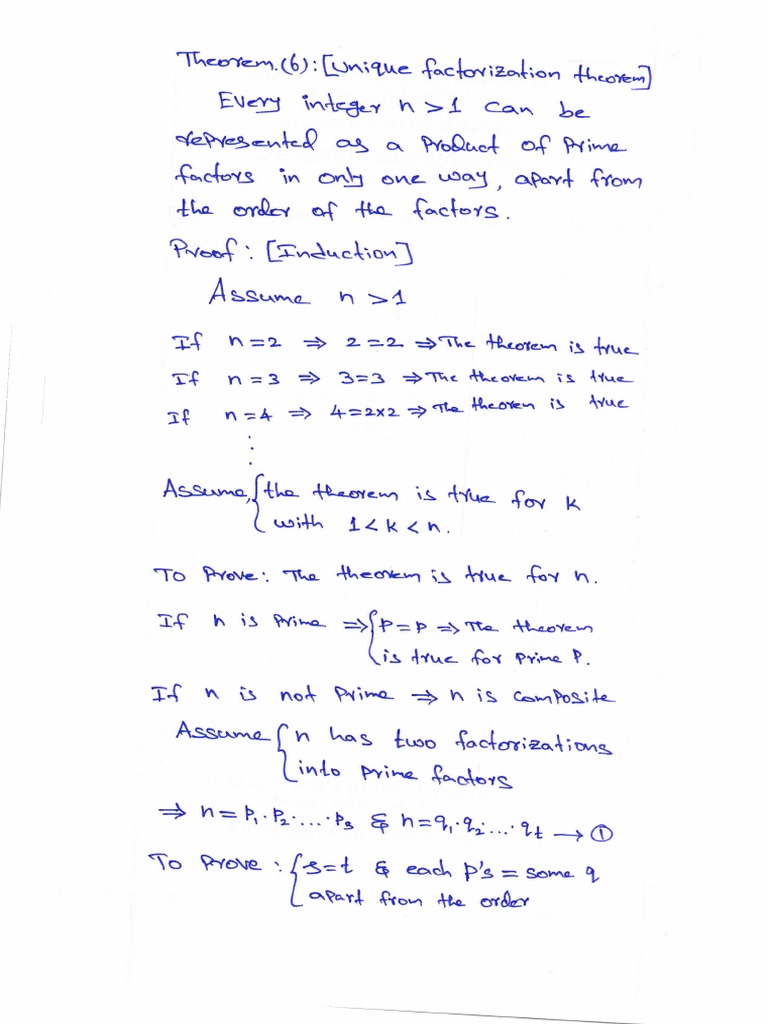 Theorem.(6):[Unique factorization theorem]
Every integer n>1 can be
represented as a product of prime
factors in only one way, apart from
the order of the factors.
Proof: [Induction]
Assume n>1
If n=2 ⇒ 2=2 ⇒ The theorem is true
If n=3 ⇒ 3=3 ⇒ The theorem is true
If n=4 ⇒ 4=2×2 ⇒ The theorem is true
⋮
Assume, { the theorem is true for k
with 1<k<n.
To Prove: The theorem is true for n.
If n is prime ⇒ { P=P ⇒ The theorem
is true for prime P.
If n is not prime ⇒ n is composite
Assume { n has two factorizations
into prime factors
⇒ n=P₁·P₂·....·Pₛ & n=q₁·q₂·...·qₜ → ①
To Prove: { s=t & each P's = some q
apart from the order